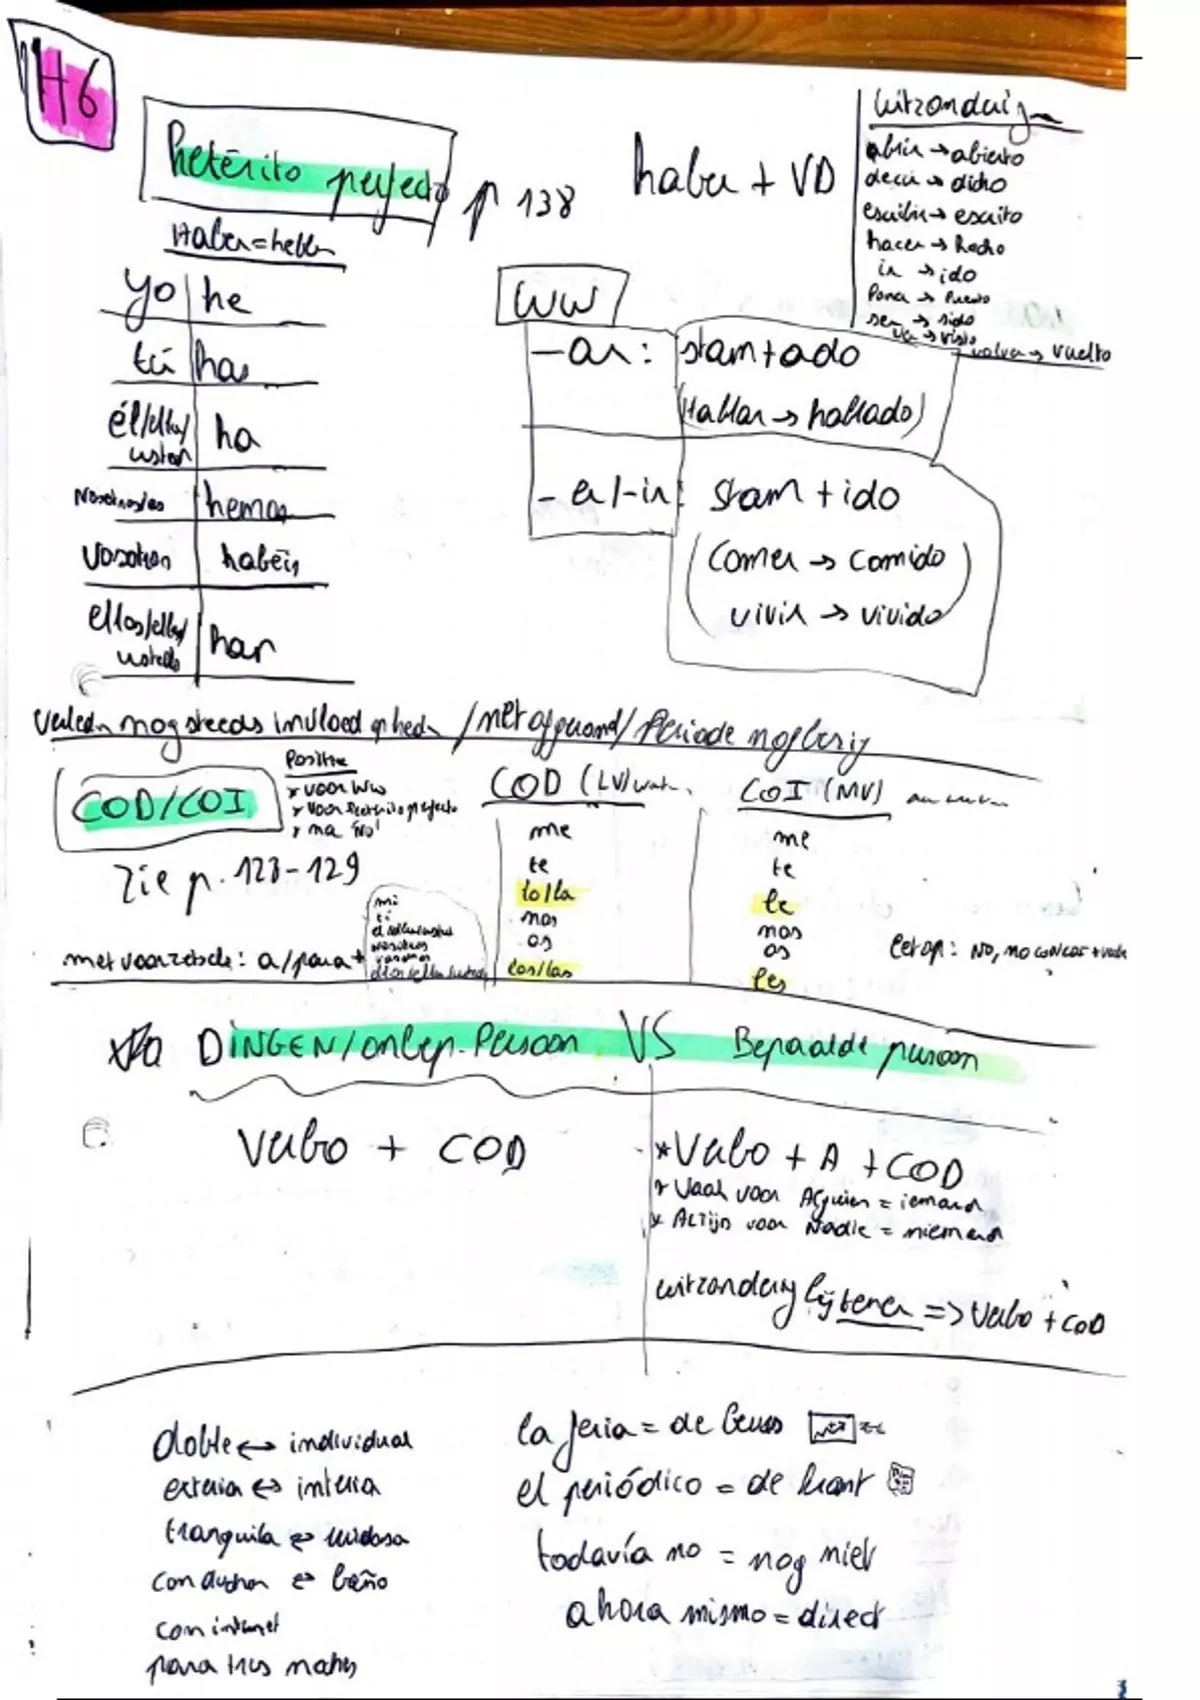 H6
Pretérito perfecto p 138
haber + VD
Uitzondering
abrir → abierto
decir → dicho
escribir → escrito
hacer → hecho
ir → ido
Poner → Puesto
ser → sido
ver → visto
volver → vuelto
Haber = hebben
yo he
tú has
él/ella/usted ha
Nosotros/as hemos
Vosotros habéis
ellos/ellas/ustedes han
WW
-ar: stam + ado
(Hablar → hablado)
-er/-ir: stam + ido
(Comer → Comido
vivir → vivido)
Verleden nog steeds invloed op heden / net afgerond / Periode nog bezig
COD/COI
Positie
* voor ww
* voor Pretérito perfecto
* na 'no'
Zie p. 128-129
met voorzetsels: a/para +
mi
ti
él/ella/usted
nosotros
vosotros
ellos/ellas/ustedes
COD (LV) wat
me
te
lo/la
nos
os
los/las
COI (MV)
me
te
le
nos
os
les
Let op: No, no
DINGEN/onbep. Persoon VS Bepaalde persoon
Verbo + COD
* Verbo + A + COD
* Vaak voor Alguien = iemand
* Altijd voor Nadie = niemand
uitzondering bij tener => Verbo + COD
doble ↔ individual
exterior ↔ interior
tranquila ↔ ruidosa
con ducha ↔ baño
con internet
para tres noches
la feria = de beurs
el periódico = de krant
todavía no = nog niet
ahora mismo = direct